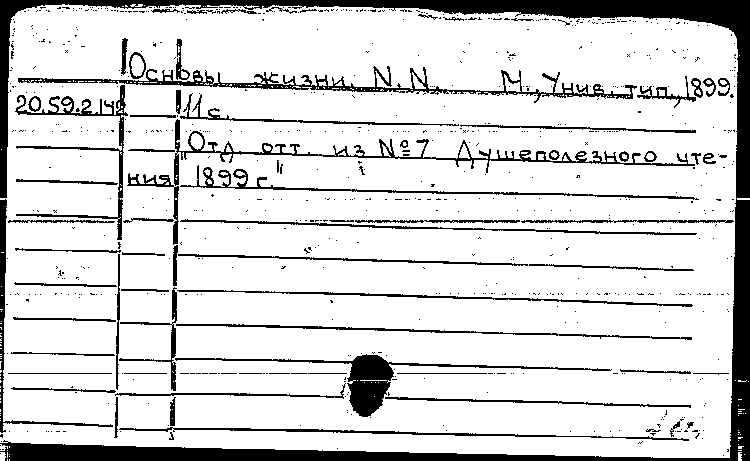 Основы жизни. N.N. М., Унив. тип., 1899.
20.59.2.142 11 с.
"Отд. отт. из №7 Душеполезного чте-
ния 1899 г."